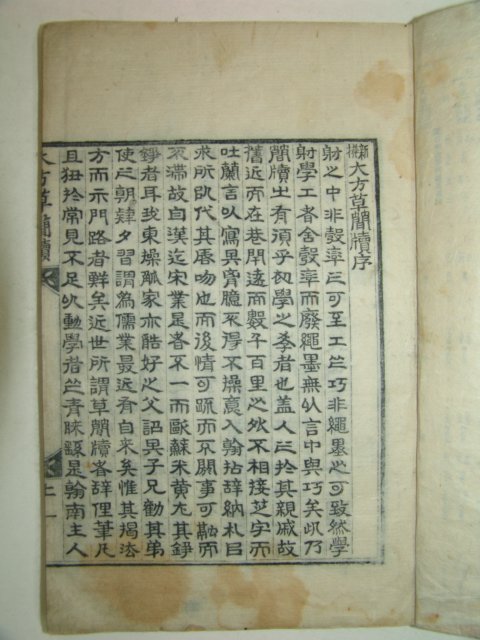 新撰大方草簡牘序
射之中非彀率之可至工之巧非繩墨之可致然學
射學工者舍彀率而廢繩墨無以言中與巧矣此乃
簡牘之有須乎初學之者也盖人之於其親戚故
舊近而在巷閈遠而數千百里之外不相接芝宇而
吐蘭言以寫其胷臆不得不操入翰拈辭納札
求所欲代其脣吻也而後情可疏而不閼事可融而
不滯故自漢迄宋業是者不一而歐蘇米黃尤其錚
錚者耳我東操觚家亦酷好之父詔其子兄勸其弟
使之朝肄夕習謂爲儒業最近有自来矣惟其揭法
方而示門路者鮮矣近世所謂草簡牘者辭俚筆凡
且狃於常見不足以動學者之青睞繄是翰南主人
大方草簡牘 上 一